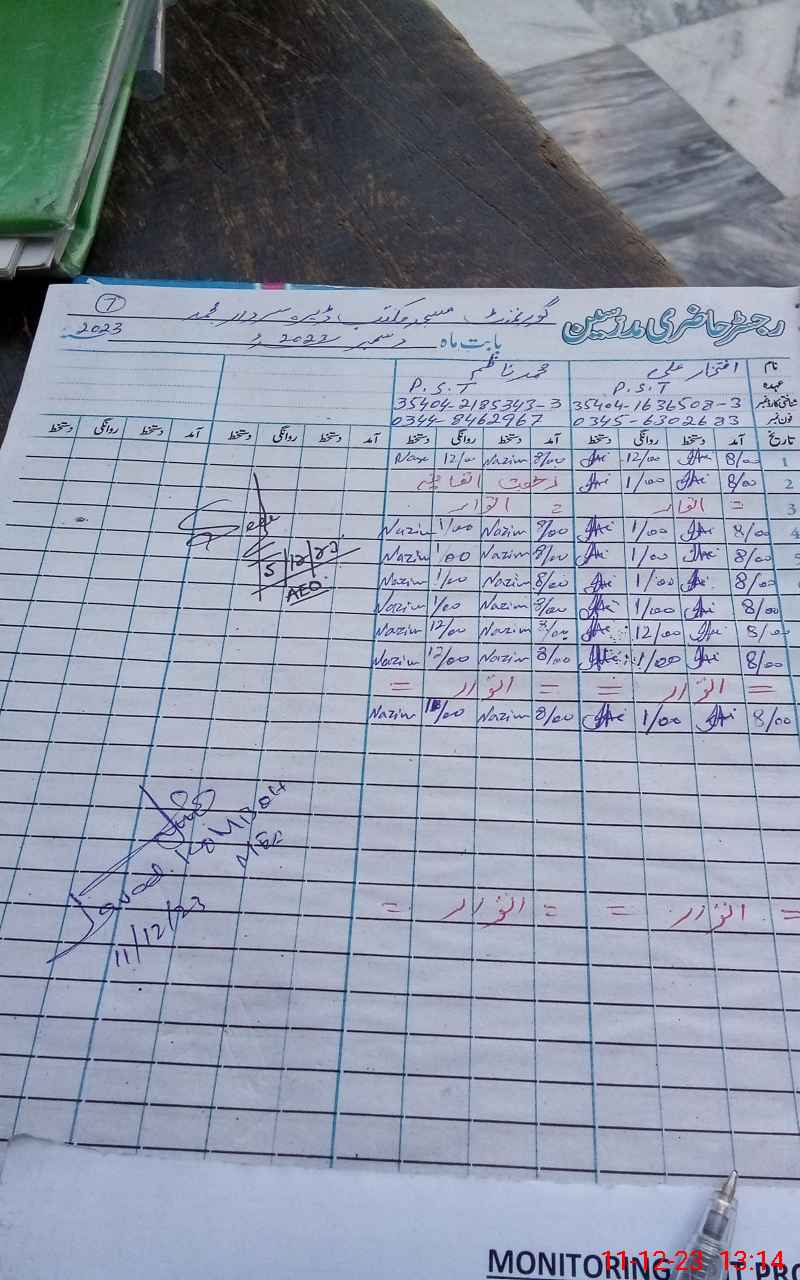 7
گورنمنٹ مسجد مکتب ڈیرہ سردار محمد
رجسٹر حاضری مدرسین
2023
بابت ماہ دسمبر 2022
نام افتخار علی محمد ناظم
عہدہ P.S.T P.S.T
شناختی کارڈ نمبر 35404-1636508-3 35404-2185343-3
فون نمبر 0345-6302683 0344-8462967
تاریخ آمد دستخط روانگی دستخط آمد دستخط روانگی دستخط آمد دستخط روانگی دستخط آمد دستخط روانگی دستخط
1 8/00 12/00 8/00 Nazim 12/00
2 8/00 1/00 رخصت اتفاقیہ
3 = اتوار = اتوار
4 8/00 1/00 8/00 Nazim 1/00 Nazim
5 8/00 1/00 8/00 Nazim 1/00 Nazim
8/00 1/00 8/00 Nazim 1/00 Nazim
8/00 1/00 8/00 Nazim 1/00 Nazim
8/00 12/00 8/00 Nazim 12/00 Nazim
8/00 1/00 8/00 Nazim 12/00 Nazim
= اتوار = = اتوار =
8/00 1/00 8/00 Nazim Nazim
5/12/23
AEO
Javad
MEA
11/12/23
= اتوار = = اتوار =
MONITORING
11-12-23 13:14